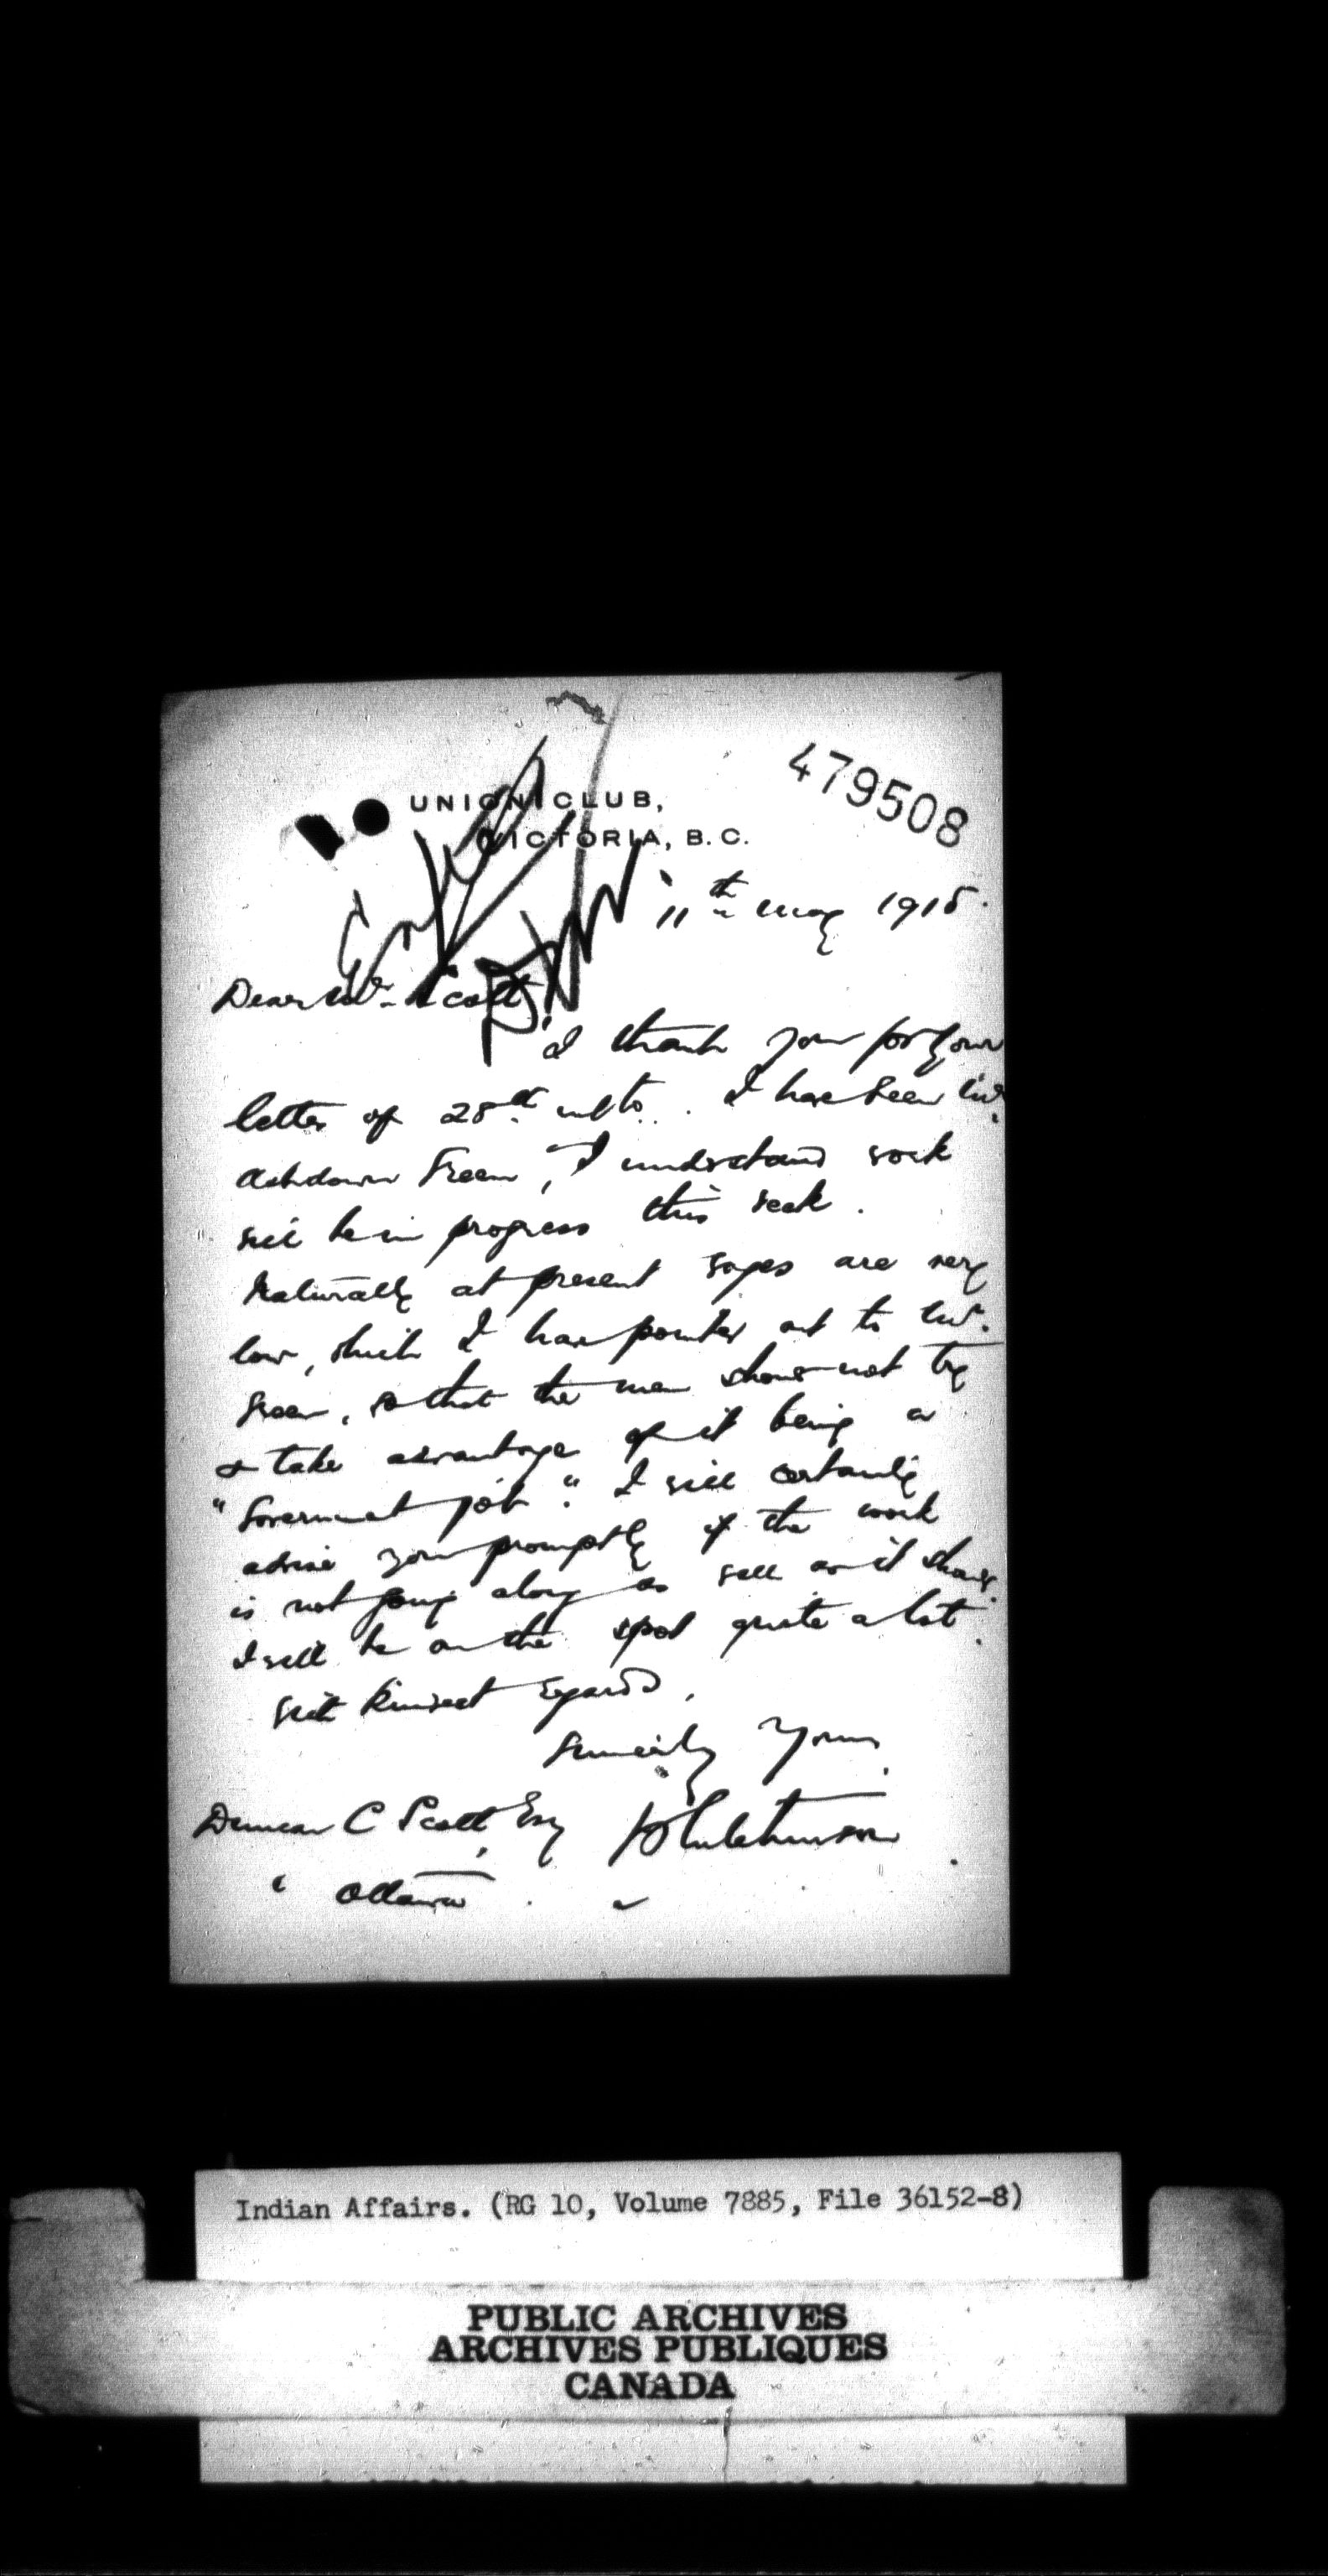 479508
UNION CLUB,
VICTORIA, B.C.
11th May 1915.
Dear Mr. Scott,
I thank you for your
letter of 28th ulto. I have seen Mr.
Ashdown Green, I understand work
will be in progress this week.
Naturally at present wages are very
low, which I have pointed out to Mr.
Green, so that the men should not try
& take advantage of it being a
"Government job". I will certainly
advise you promptly if the work
is not going along as well as it should.
I will be on the spot quite a lot.
With kindest regards,
Sincerely Yours,
Duncan C Scott, Esq
Ottawa
Indian Affairs. (RG 10, Volume 7885, File 36152-8)
PUBLIC ARCHIVES
ARCHIVES PUBLIQUES
CANADA